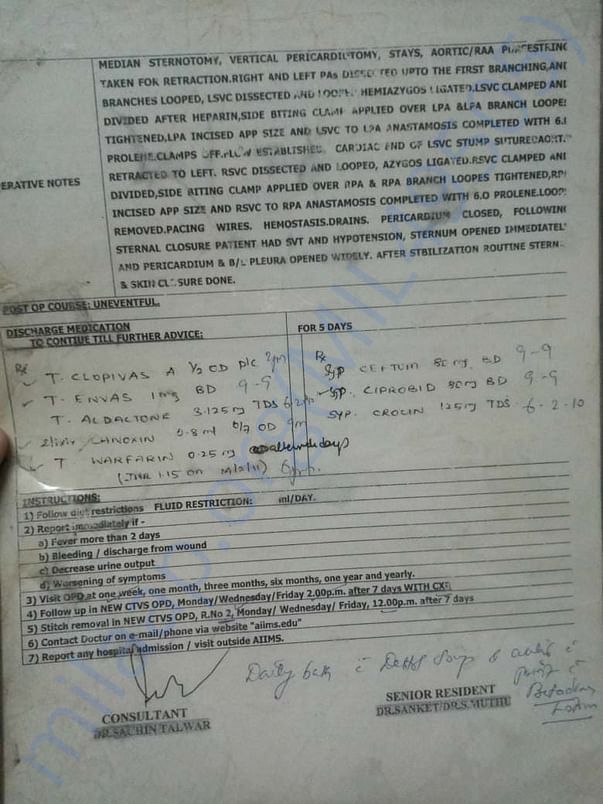 MEDIAN STERNOTOMY, VERTICAL PERICARDIOTOMY, STAYS, AORTIC/RAA PURSESTRING
TAKEN FOR RETRACTION.RIGHT AND LEFT PAs DISSECTED UPTO THE FIRST BRANCHING,AND
BRANCHES LOOPED, LSVC DISSECTED AND LOOPED HEMIAZYGOS LIGATED.LSVC CLAMPED AND
DIVIDED AFTER HEPARIN,SIDE BITING CLAMP APPLIED OVER LPA &LPA BRANCH LOOPES
TIGHTENED,LPA INCISED APP SIZE AND LSVC TO LPA ANASTAMOSIS COMPLETED WITH 6.0
PROLENE.CLAMPS OFF.FLOW ESTABLISHED. CARDIAC END OF LSVC STUMP SUTURED
RETRACTED TO LEFT. RSVC DISSECTED AND LOOPED, AZYGOS LIGATED.RSVC CLAMPED AND
ERATIVE NOTES
DIVIDED,SIDE BITING CLAMP APPLIED OVER RPA & RPA BRANCH LOOPES TIGHTENED,RPA
INCISED APP SIZE AND RSVC TO RPA ANASTAMOSIS COMPLETED WITH 6.O PROLENE.LOOPS
REMOVED.PACING WIRES. HEMOSTASIS.DRAINS. PERICARDIUM CLOSED, FOLLOWING
STERNAL CLOSURE PATIENT HAD SVT AND HYPOTENSION, STERNUM OPENED IMMEDIATELY
AND PERICARDIUM & B/L PLEURA OPENED WIDELY. AFTER STBILIZATION ROUTINE STERN
& SKIN CLOSURE DONE.
POST OP COURSE: UNEVENTFUL.
DISCHARGE MEDICATION
TO CONTIUE TILL FURTHER ADVICE:
FOR 5 DAYS
Rx
T. CLOPIVAS A 1/2 OD p/c 2pm
T. ENVAS 1mg BD 9-9
T. ALDACTONE 3.125mg TDS 6-2-10
LANOXIN 0.8ml 6/7 OD
T WARFARIN 0.25mg
(INR 1.15 on 6pm.
Rx
Syp CEFTUM 80mg BD 9-9
Syp. CIPROBID 80mg BD 9-9
SYP. CROCIN 125mg TDS 6-2-10
INSTRUCTIONS:
1) Follow diet restrictions FLUID RESTRICTION: ml/DAY.
2) Report immediately if -
a) Fever more than 2 days
b) Bleeding / discharge from wound
c) Decrease urine output
d) Worsening of symptoms
3) Visit OPD at one week, one month, three months, six months, one year and yearly.
4) Follow up in NEW CTVS OPD, Monday/Wednesday/Friday 2.00p.m. after 7 days WITH CXR
5) Stitch removal in NEW CTVS OPD, R.No 2, Monday/ Wednesday/ Friday, 12.00p.m. after 7 days
6) Contact Doctor on e-mail/phone via website "aiims.edu"
7) Report any hospital admission / visit outside AIIMS.
Daily bath c Dettol Soap &
Betadine
CONSULTANT
DR.SACHIN TALWAR
SENIOR RESIDENT
DR.SANKET/DR.S.MUTHU